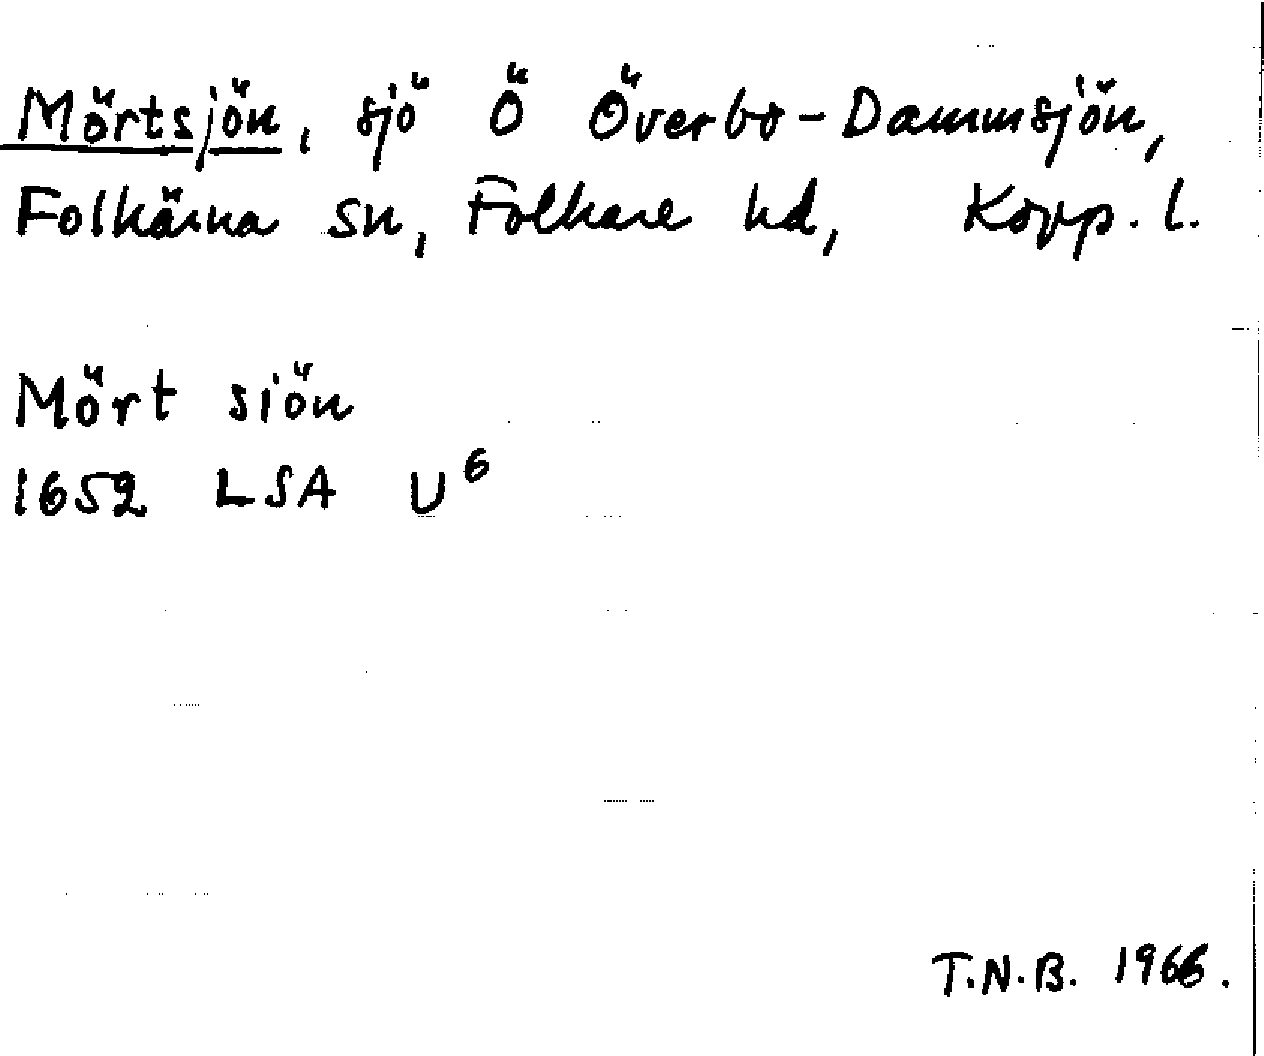 Mörtsjön, sjö Ö Överbo-Dammsjön,
Folkärna sn, Folkare hd, Kopp. l.
Mört siön
1652 LSA U⁶
T.N.B. 1966.